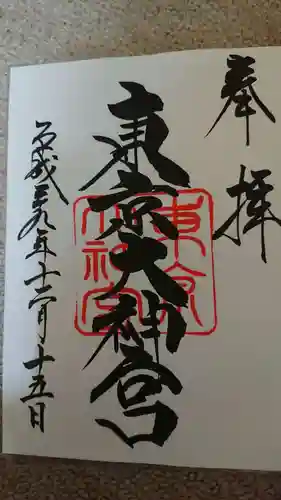 奉拝
東京大神宮
東京
大神宮
平成二十九年十二月十五日